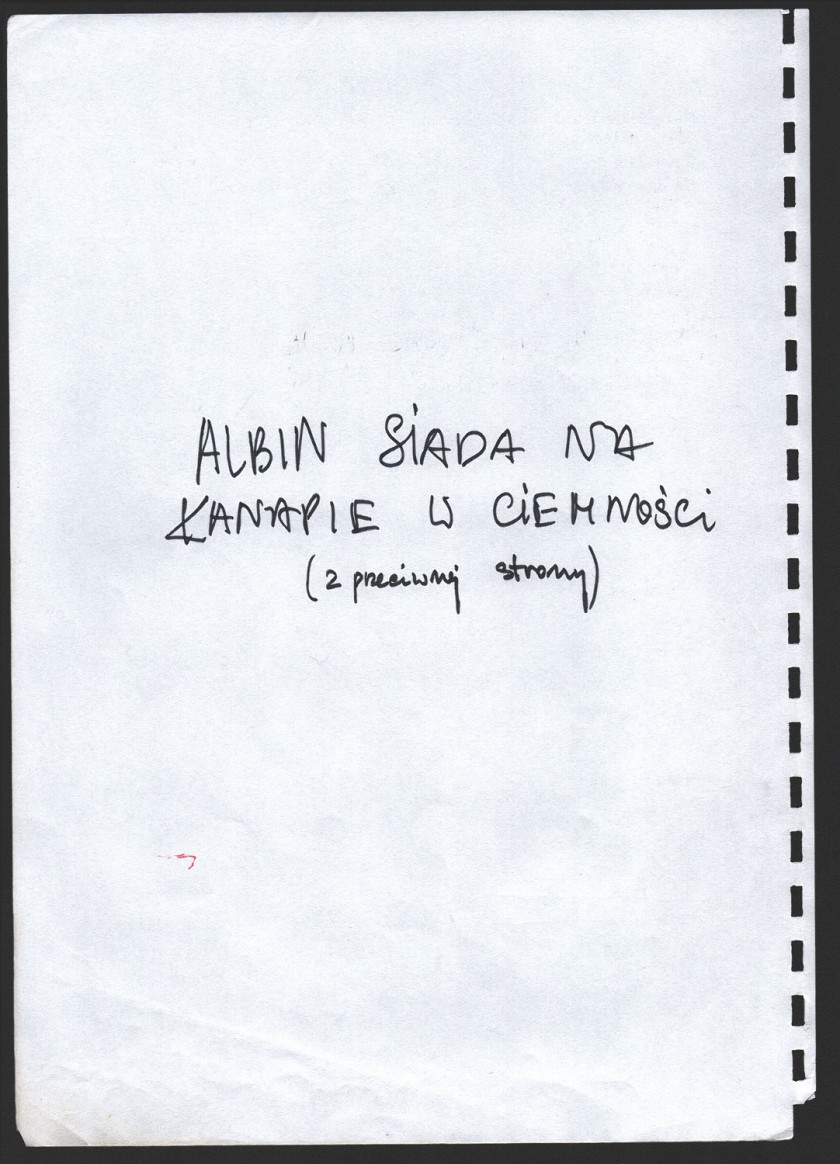 ALBIN SIADA NA
KANAPIE W CIEMNOŚCI
(z przeciwnej strony)